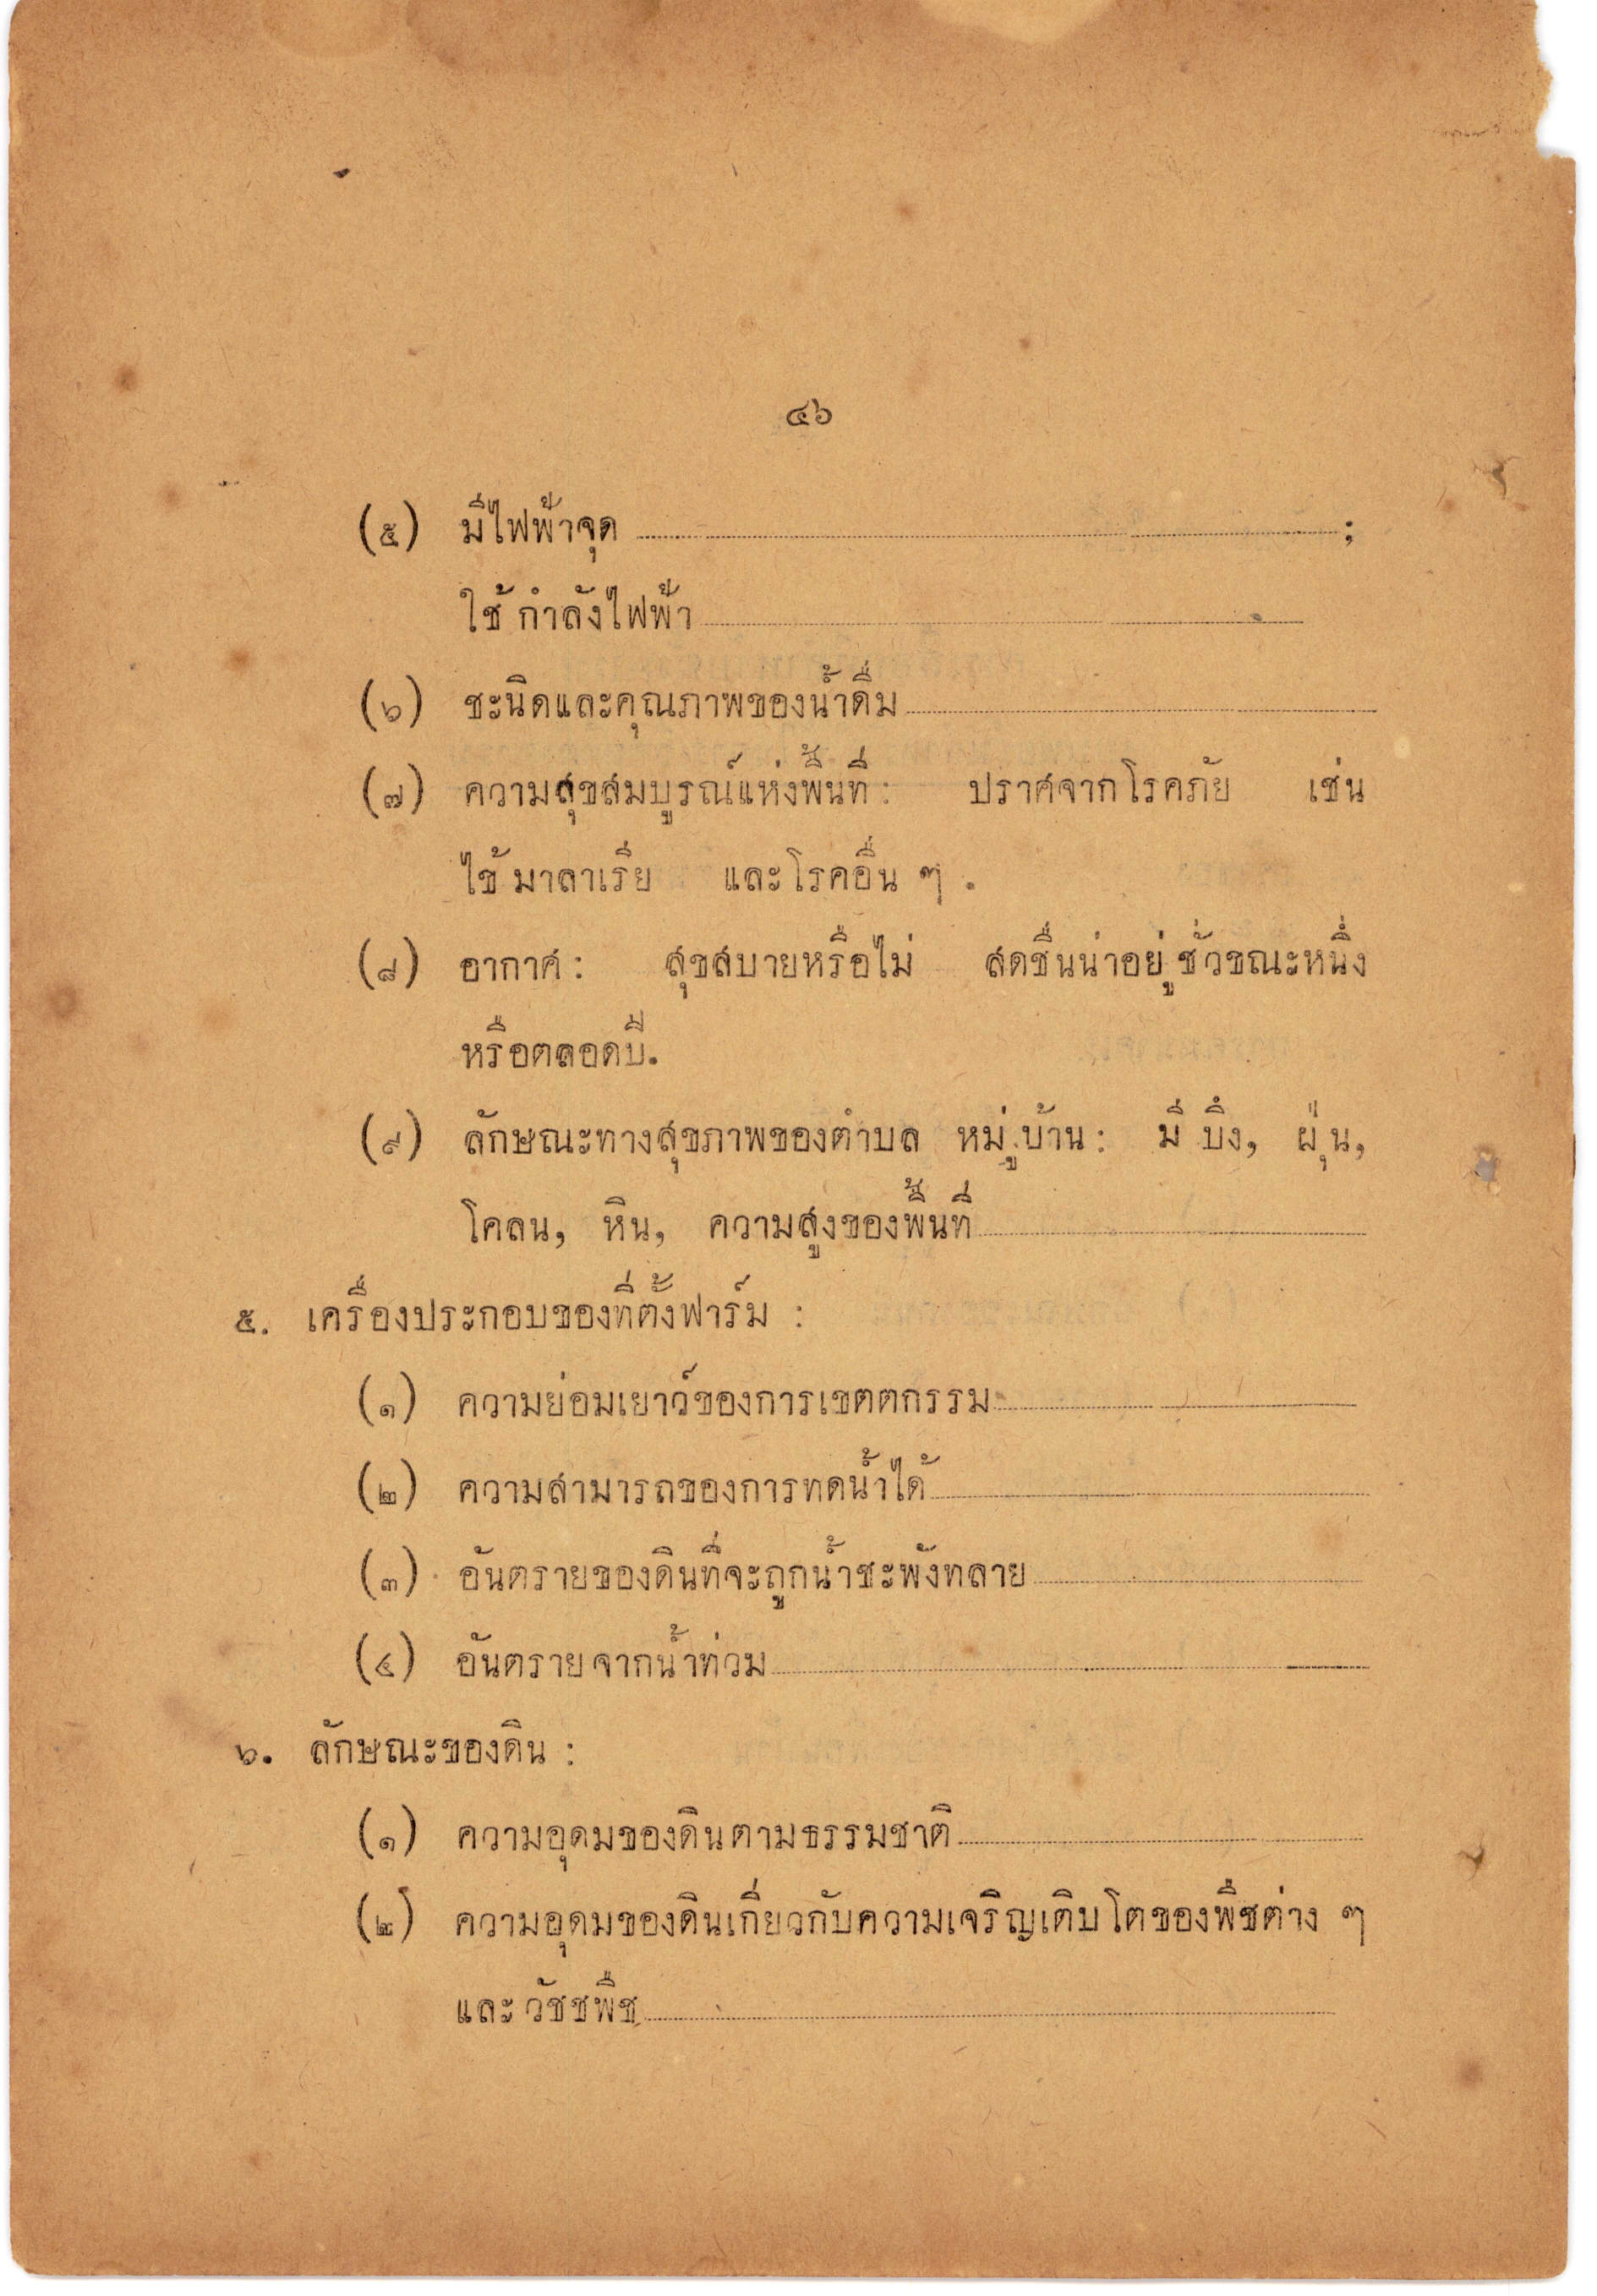 ๔๖
(๕) มีไฟฟ้าจุด ........................................ ;
ใช้กำลังไฟฟ้า ........................................
(๖) ชะนิดและคุณภาพของน้ำดื่ม ........................................
(๗) ความสุขสมบูรณ์แห่งพื้นที่: ปราศจากโรคภัย เช่น
ไข้มาลาเรีย และโรคอื่น ๆ .
(๘) อากาศ: สุขสบายหรือไม่ สดชื่นน่าอยู่ชั่วขณะหนึ่ง
หรือตลอดปี.
(๙) ลักษณะทางสุขภาพของตำบล หมู่บ้าน: มี บึง, ฝุ่น,
โคลน, หิน, ความสูงของพื้นที่ ........................................
๕. เครื่องประกอบของที่ตั้งฟาร์ม :
(๑) ความย่อมเยาว์ของการเขตตกรรม ........................................
(๒) ความสามารถของการทดน้ำได้ ........................................
(๓) อันตรายของดินที่จะถูกน้ำชะพังทลาย ........................................
(๔) อันตรายจากน้ำท่วม ........................................
๖. ลักษณะของดิน :
(๑) ความอุดมของดินตามธรรมชาติ ........................................
(๒) ความอุดมของดินเกี่ยวกับความเจริญเติบโตของพืชต่าง ๆ
และวัชชพืช ........................................